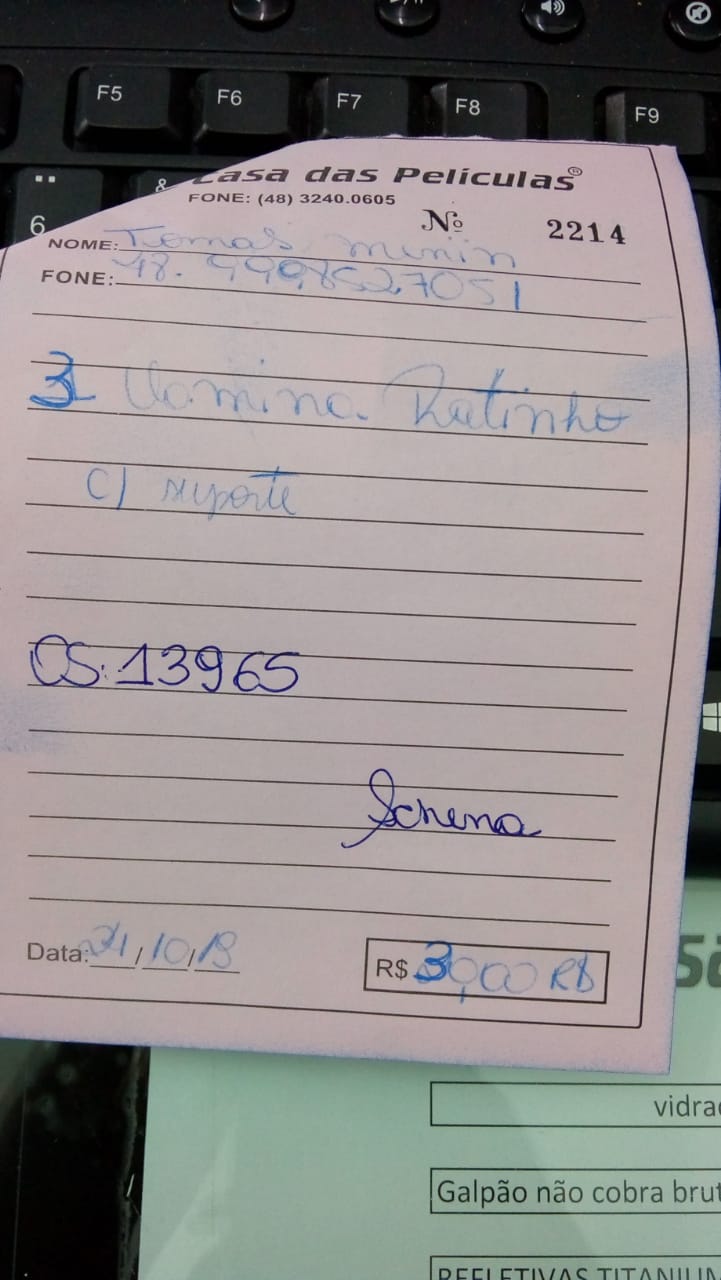 F5 F6 F7 F8 F9
6 &
Casa das Películas®
FONE: (48) 3240.0605
Nº 2214
NOME: Tomas
FONE: 48. 9998527051
Lamina Ratinho
C/ suporte
OS: 13965
Data: 21/10/19
R$ 30,00 R$
vidra
Galpão não cobra brut
REFLETIVAS TITANIUN